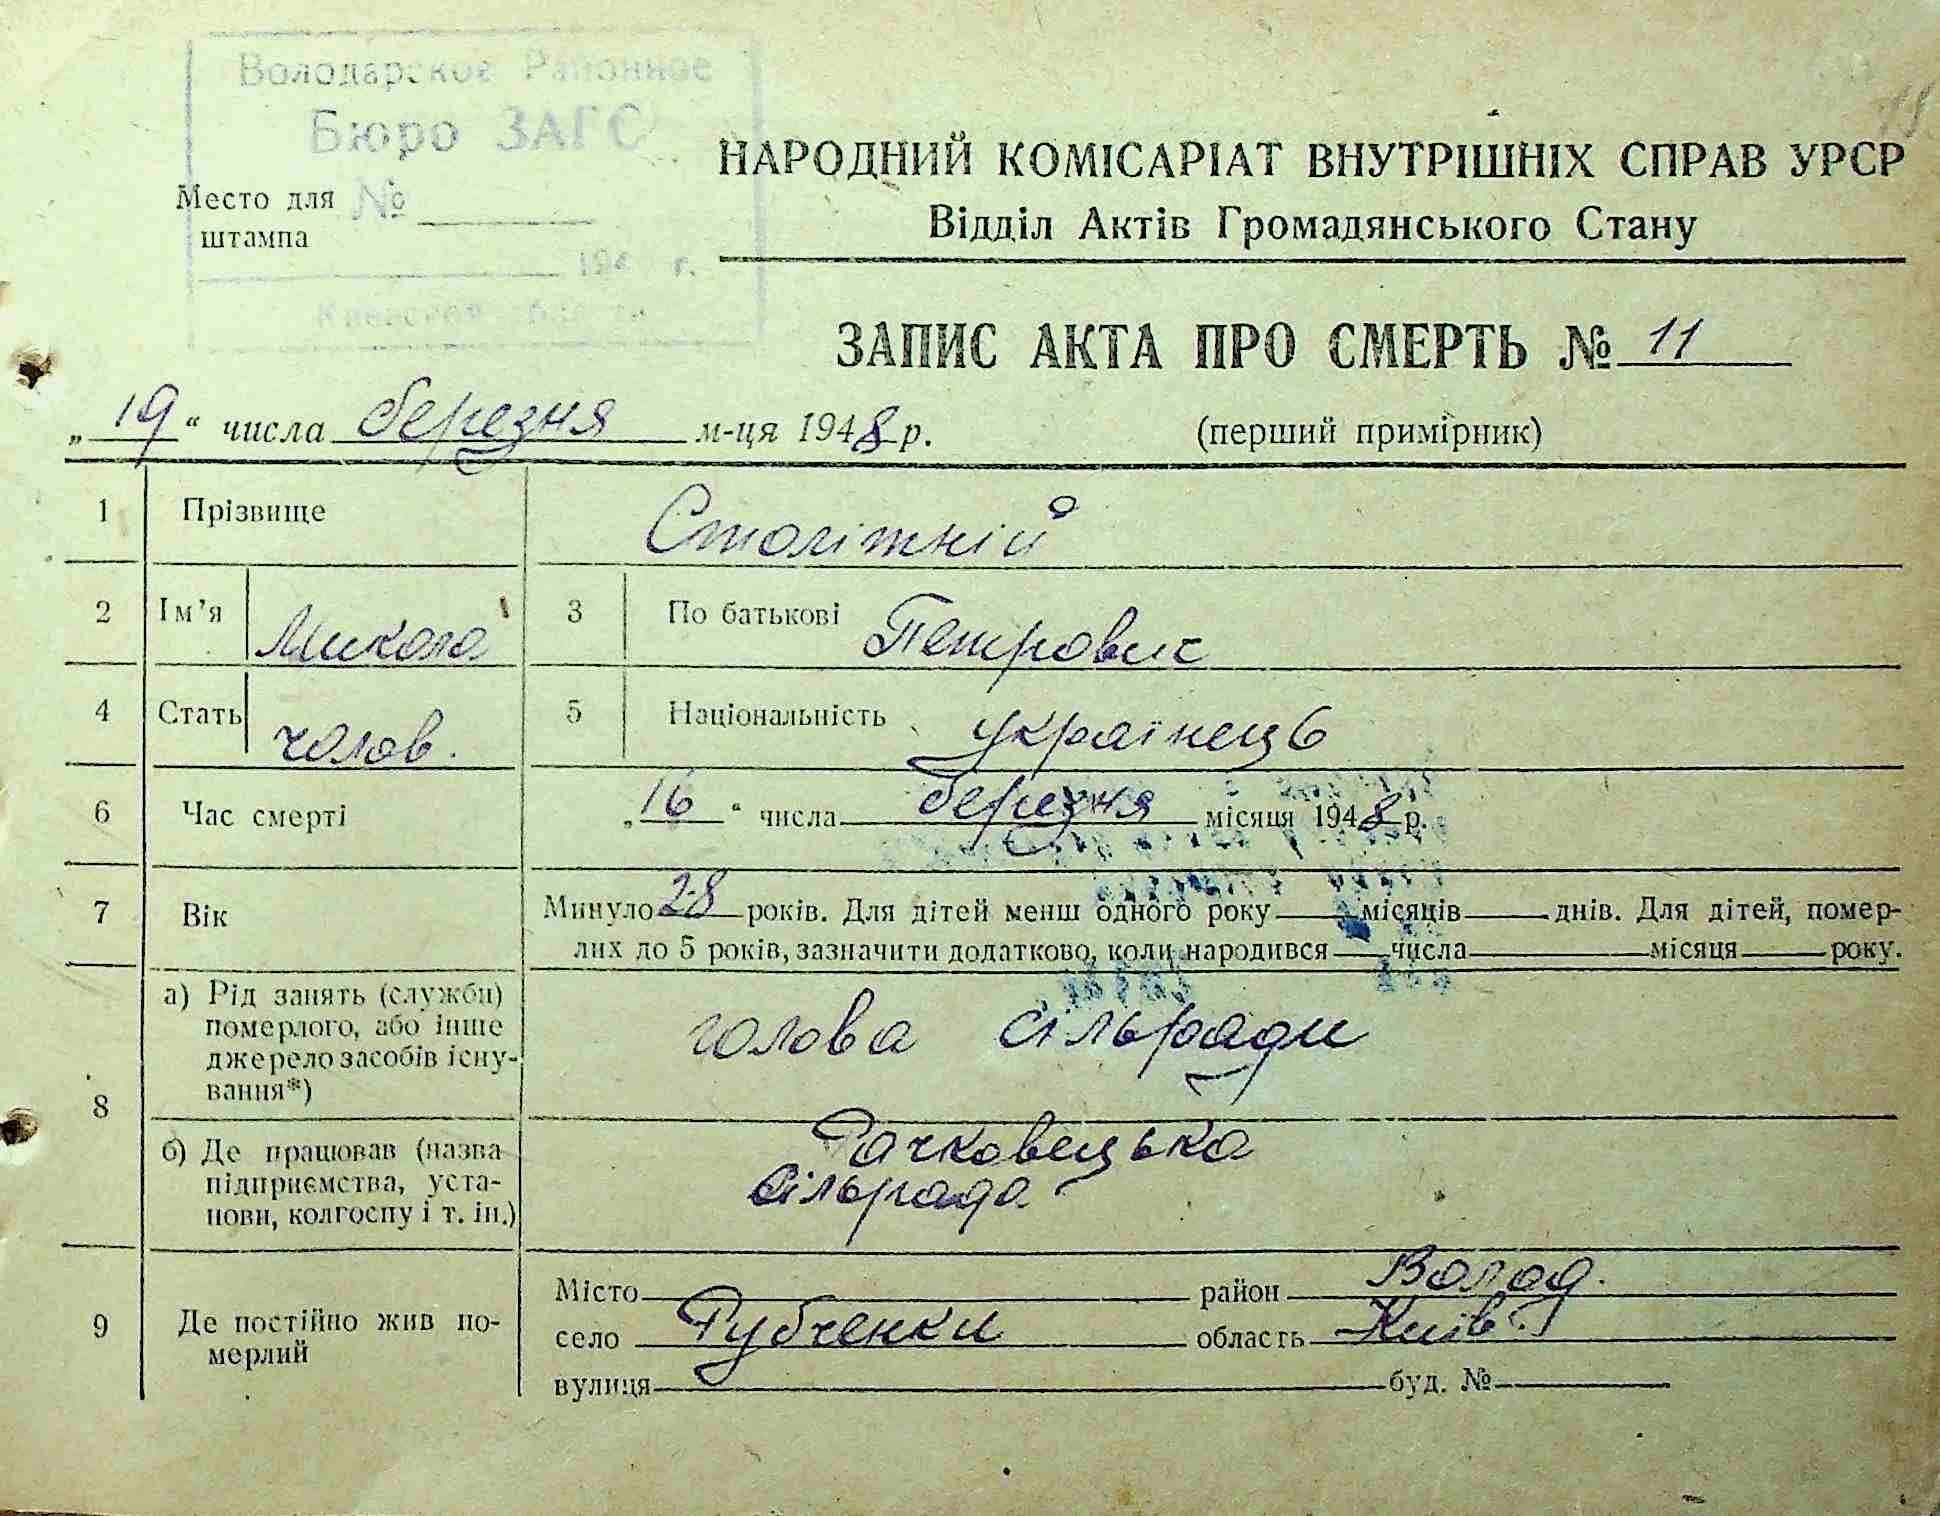 Володарское Районное
Бюро ЗАГС
№
194 г.
Киевской области
Место для
штампа
НАРОДНИЙ КОМІСАРІАТ ВНУТРІШНІХ СПРАВ УРСР
Відділ Актів Громадянського Стану
ЗАПИС АКТА ПРО СМЕРТЬ № 11
„19“ числа березня м-ця 1948 р.
(перший примірник)
1 Прізвище Столітній
2 Ім'я Микола 3 По батькові Петрович
4 Стать чолов. 5 Національність українець
6 Час смерті „16“ числа березня місяця 1948 р.
7 Вік Минуло 28 років. Для дітей менш одного року місяців днів. Для дітей, помер-
лих до 5 років, зазначити додатково, коли народився числа місяця року.
8 а) Рід занять (служби)
померлого, або інше
джерело засобів існу-
вання*)
голова сільради
б) Де працював (назва
підприємства, уста-
нови, колгоспу і т. ін.)
Рачковецька
сільрада
9 Де постійно жив по-
мерлий
Місто район Волод.
село Рубченки область Київ.
вулиця буд. №